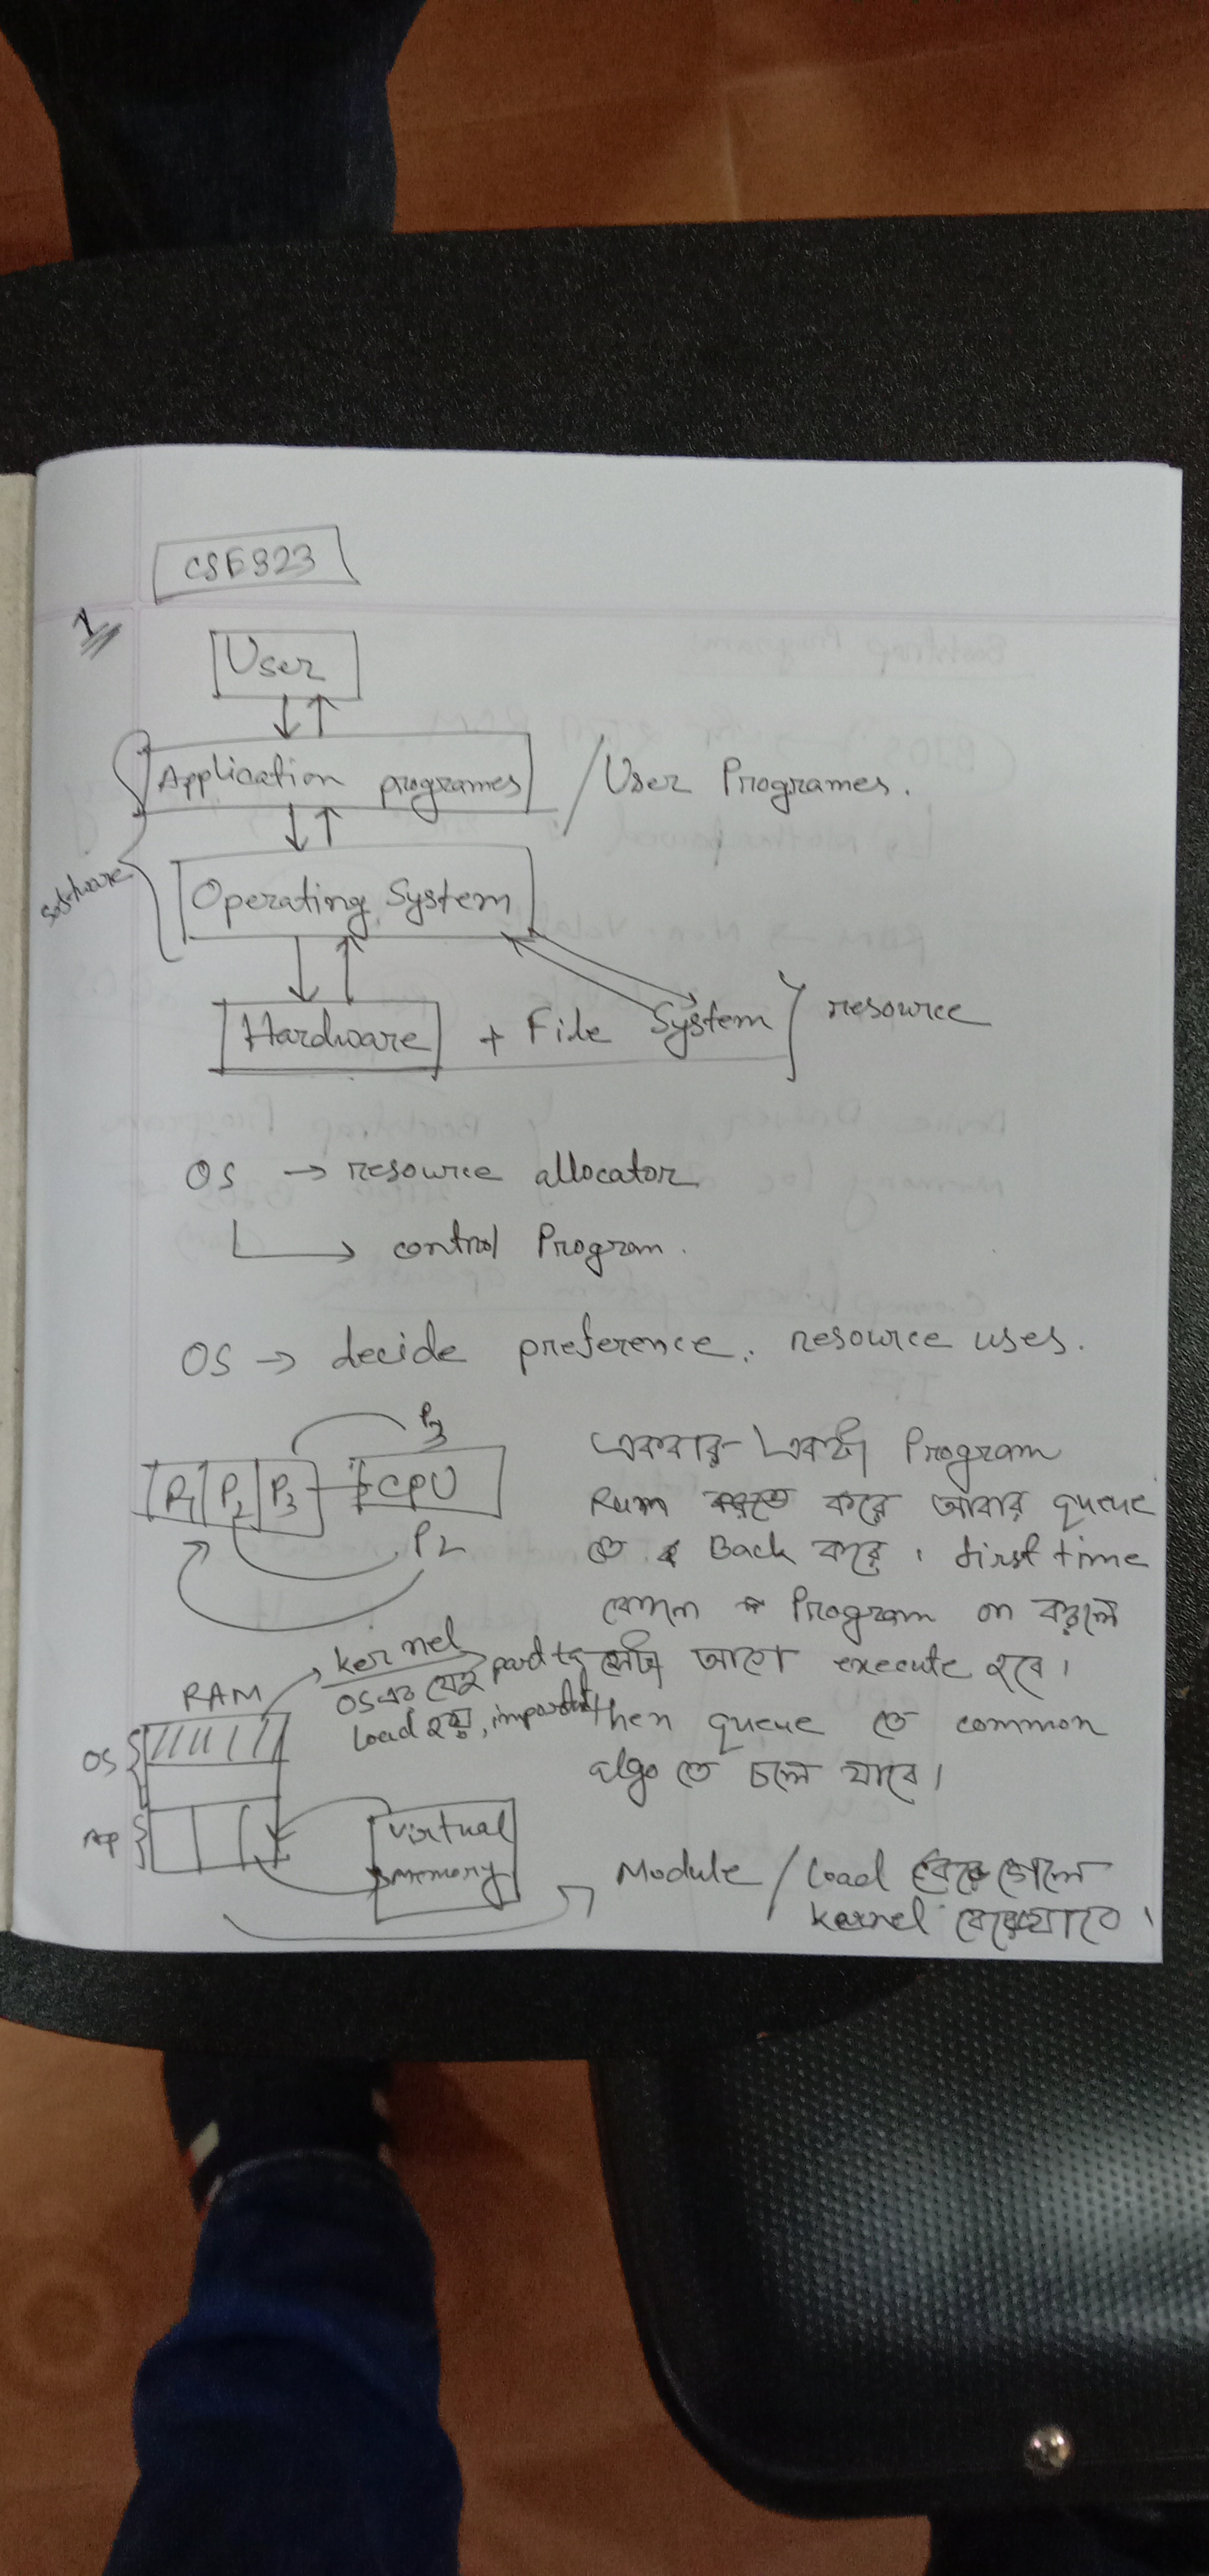 CSE323
1
User
Application programes / User Programes.
software
Operating System
Hardware + File System } resource
OS → resource allocator
→ control Program.
OS → decide preference. resource uses.
P3
P1 P2 P3 CPU
P2
একবার একটা Program
Run করে আবার queue
তে Back করে। first time
কোনো Program on করলে
সেটা আগে execute হবে।
then queue তে common
algo তে চলে যাবে।
kernel
OS এর যেই part টা
load হয়, important
RAM
OS
AP
virtual
memory
Module / load
kernel